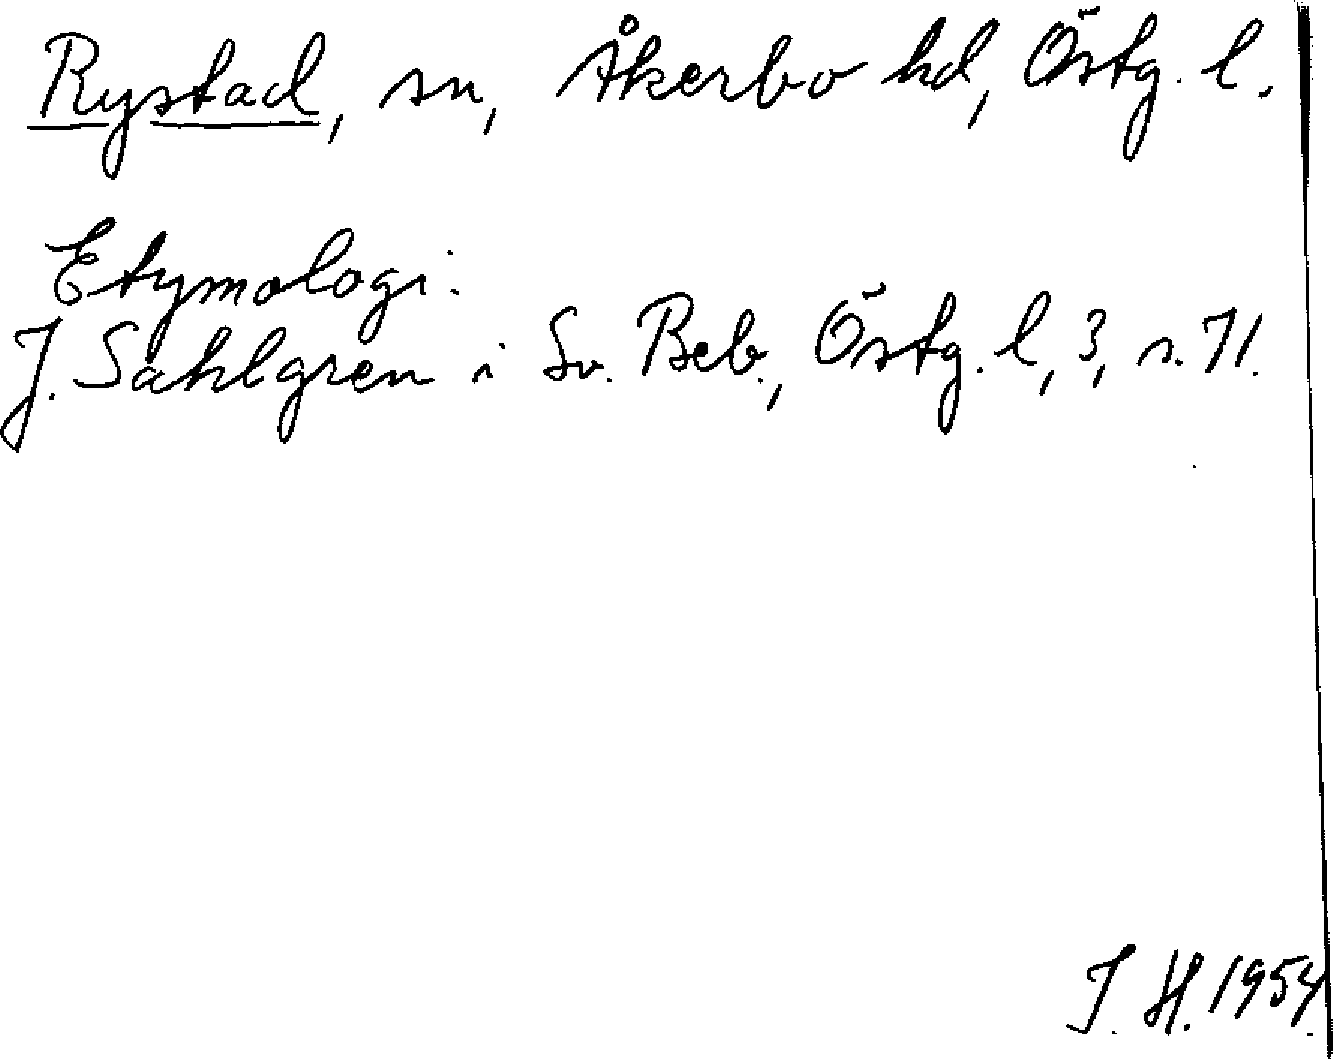 Rystad, sn, Åkerbo hd, Östg. l.
Etymologi:
J. Sahlgren i Sv. Beb., Östg. l, 3, s. 71.
J. H. 1954.